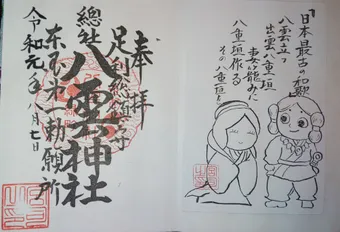 「日本最古の和歌」
八雲立つ
出雲八重垣
妻籠みに
八重垣作る
その八重垣を
奉拝
足利総鎮守
總社八雲神社
勅願所
令和元年八月七日